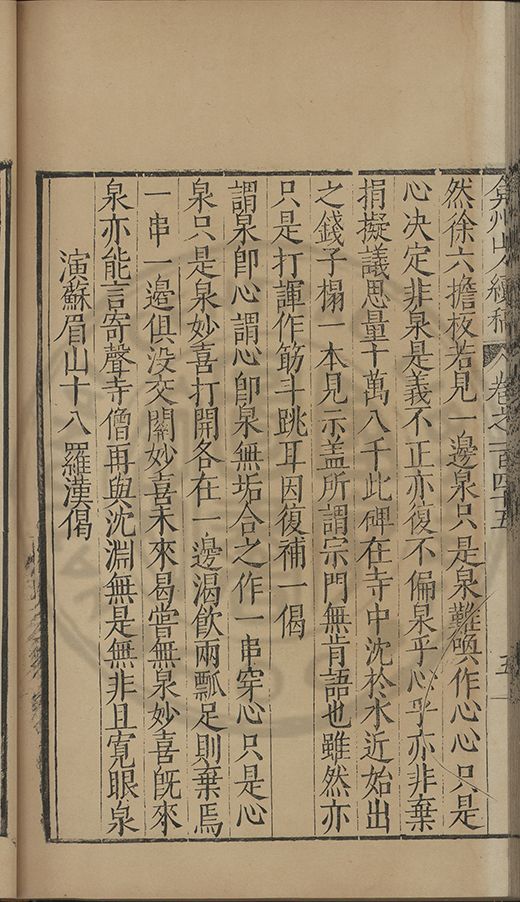 弇州山人續稿 卷之一百四十五 五
然徐六擔板若見一邊泉只是泉難喚作心心只是
心決定非泉是義不正亦復不偏泉乎心乎亦非棄
捐擬議思量十萬八千此碑在寺中沈於水近始出
之錢子搨一本見示盖所謂宗門無盲語也雖然亦
只是打諢作筋斗跳耳因復補一偈
謂泉即心謂心即泉無垢合之作一串穿心只是心
泉只是泉妙喜打開各在一邊渴飲兩瓢足則棄焉
一串一邊俱没交關妙喜未來曷嘗無泉妙喜既來
泉亦能言寄聲寺僧再與沈淵無是無非且寛眼泉
演蘇眉山十八羅漢偈